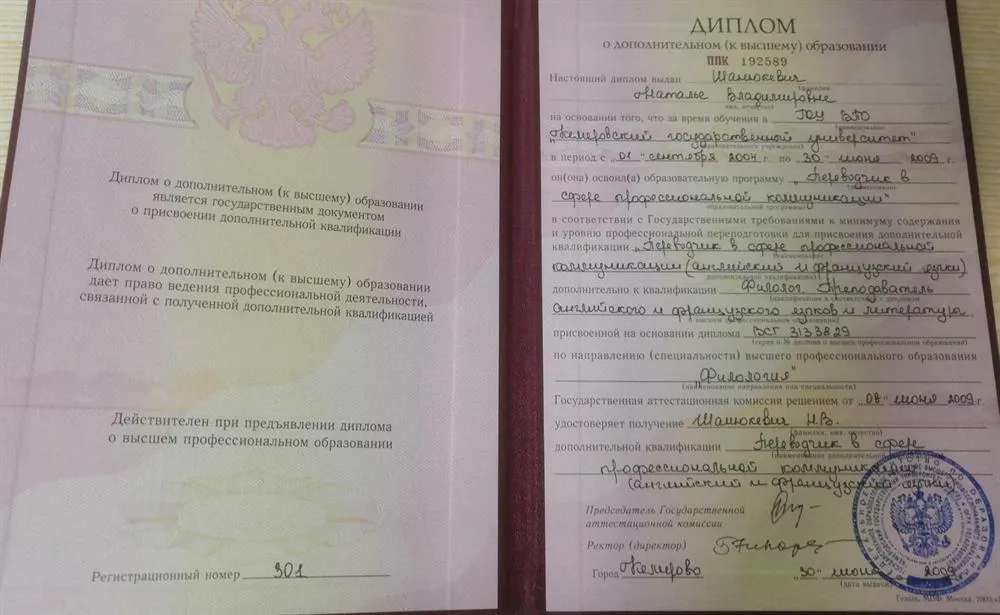 Диплом о дополнительном (к высшему) образовании
является государственным документом
о присвоении дополнительной квалификации
Диплом о дополнительном (к высшему) образовании
дает право ведения профессиональной деятельности,
связанной с полученной дополнительной квалификацией
Действителен при предъявлении диплома
о высшем профессиональном образовании
Регистрационный номер 301
ДИПЛОМ
о дополнительном (к высшему) образовании
ППК 192589
Настоящий диплом выдан Шанюкевич
(фамилия,
Наталье Владимировне
имя, отчество)
на основании того, что за время обучения в ГОУ ВПО
(наименование
"Кемеровский государственный университет"
образовательного учреждения)
в период с „01 " сентября 2004 г. по „30" июня 2009г.
он(она) освоил(а) образовательную программу „Переводчик в
(наименование
сфере профессиональной коммуникации"
образовательной программы)
в соответствии с Государственными требованиями к минимуму содержания
и уровню профессиональной переподготовки для присвоения дополнительной
квалификации „Переводчик в сфере профессиональной
(наименование
коммуникации (английский и французский языки)
дополнительной квалификации)
дополнительно к квалификации Филолог. Преподаватель
(квалификация в соответствии с дипломом
английского и французского языков и литературы,
о высшем профессиональном образовании)
присвоенной на основании диплома ВСГ 3133829
(серия и № диплома о высшем профессиональном образовании)
по направлению (специальности) высшего профессионального образования
„Филология"
(наименование направления или специальности)
Государственная аттестационная комиссия решением от „08" июня 2009г.
удостоверяет получение Шанюкевич Н.В.
(фамилия, имя, отчество)
дополнительной квалификации Переводчик в сфере
(наименование дополнительной
профессиональной коммуникации
(английский и французский языки)
Председатель Государственной
аттестационной комиссии
Ректор (директор)
Город Кемерово „30" июня 2009
(дата выдачи)
Гознак, Москва, 2005,